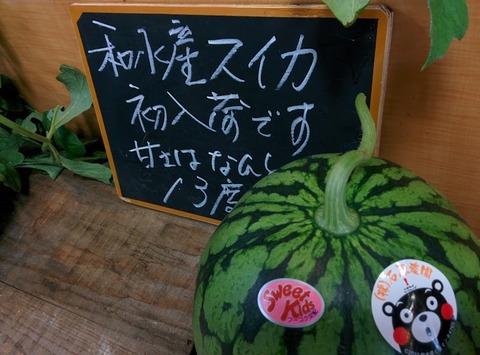 和水産スイカ
初入荷です
甘さはなんと
13度
Sweet Kids